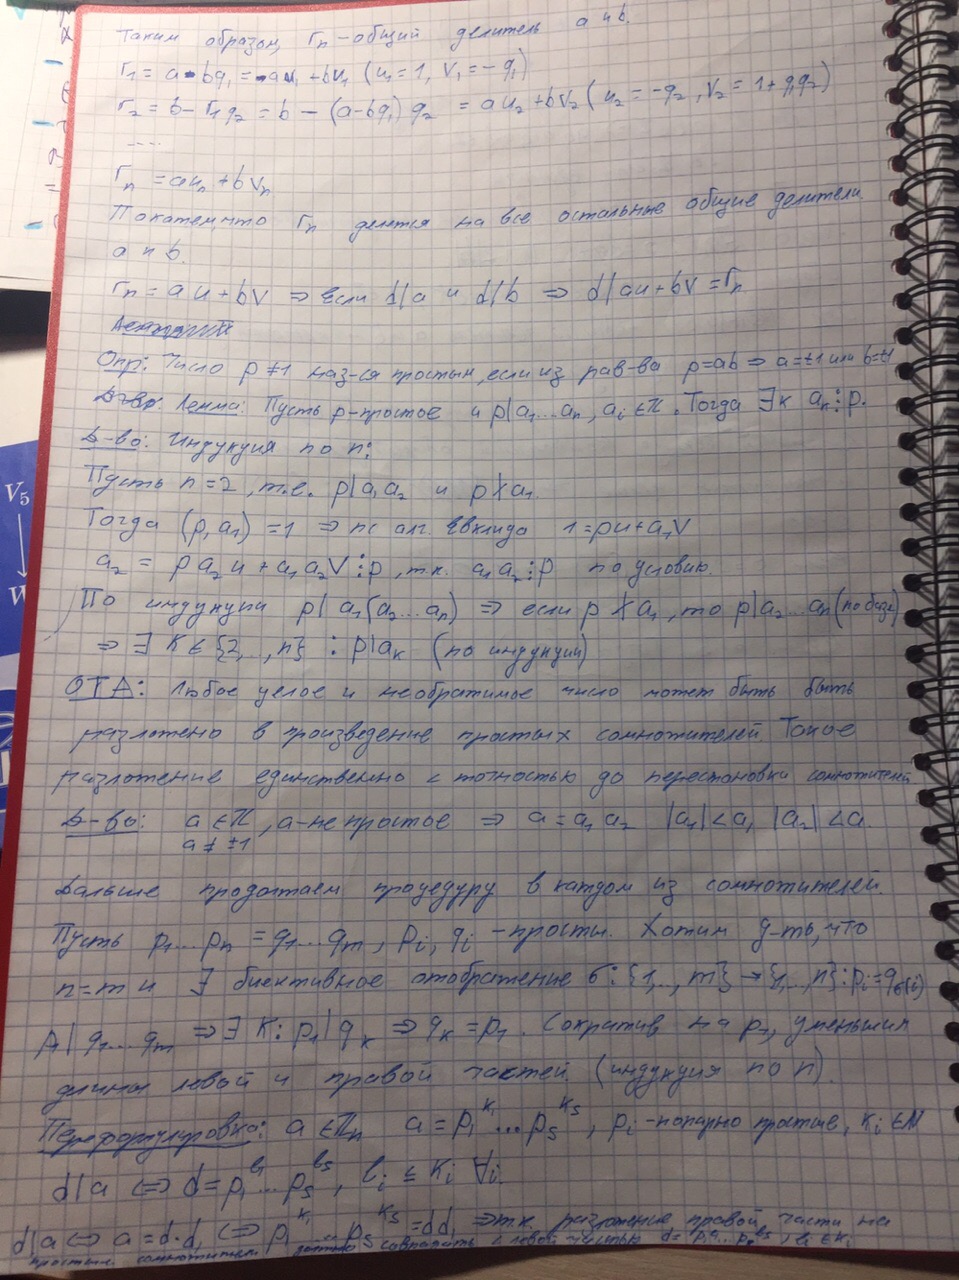 Таким образом, rₙ - общий делитель a и b.
r₁ = a - bq₁ = au₁ + bv₁ (u₁ = 1, v₁ = -q₁)
r₂ = b - r₁q₂ = b - (a-bq₁)q₂ = au₂ + bv₂ (u₂ = -q₂, v₂ = 1+q₁q₂)
....
rₙ = auₙ + bvₙ
Покажем, что rₙ делится на все остальные общие делители
a и b.
rₙ = au + bv ⇒ Если d|a и d|b ⇒ d|au+bv = rₙ
Опр: Число p ≠ 1 наз-ся простым, если из рав-ва p=ab ⇒ a=±1 или b=±1
Лемма: Пусть p-простое и p|a₁...aₙ, aᵢ ∈ ℤ. Тогда ∃k aₙ⋮p.
Д-во: Индукция по n:
Пусть n=2, т.е. p|a₁a₂ и p∤a₁.
Тогда (p,a₁)=1 ⇒ по алг. Евклида 1=pu+a₁v
a₂ = pa₂u + a₁a₂v⋮p, т.к. a₁a₂⋮p по условию.
По индукции p|a₁(a₂...aₙ) ⇒ если p∤a₁, то p|a₂...aₙ (по базе)
⇒ ∃ k ∈ {2,..,n} : p|aₖ (по индукции)
ОТА: Любое целое и необратимое число может быть быть
разложено в произведение простых сомножителей. Такое
разложение единственно с точностью до перестановки сомножителей
Д-во: a ∈ ℤ, a-не простое ⇒ a = a₁a₂ |a₁|<a, |a₂|<a.
a ≠ ±1
Дальше продолжаем процедуру в каждом из сомножителей.
Пусть p₁...pₙ = q₁...qₘ, pᵢ, qᵢ - просты. Хотим д-ть, что
n=m и ∃ биективное отображение σ: {1,..,m} → {1,..,n} : pᵢ = q_σ(i)
p₁|q₁...qₘ ⇒ ∃k: p₁|qₖ ⇒ qₖ = p₁. Сократив на p₁, уменьшим
длины левой и правой частей. (индукция по n).
Переформулировка: a ∈ ℤₙ a = p₁^k₁...pₛ^kₛ, pᵢ - попарно простые, kᵢ ∈ ℕ
d|a ⇔ d = p₁^l₁...pₛ^lₛ, lᵢ ≤ kᵢ ∀i.
d|a ⇔ a = d·d₁ ⇔ p₁^k₁...pₛ^kₛ = dd₁ ⇒ т.к. разложение правой части на
простые сомножители должно совпадать с левой частью
V₅